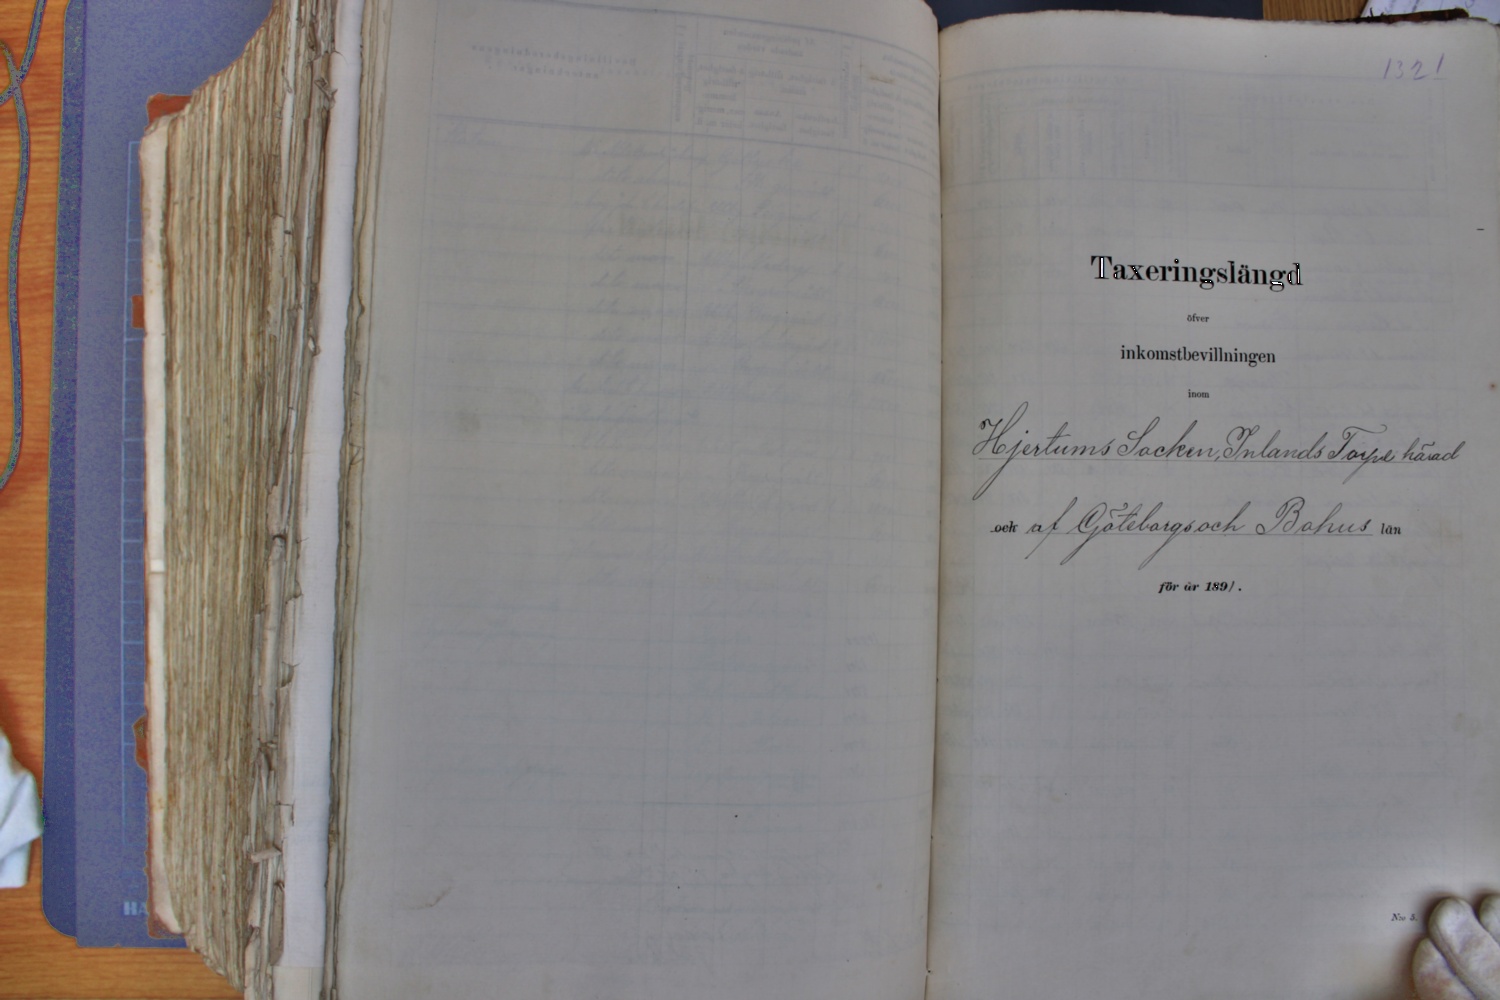 1321
Taxeringslängd
öfver
inkomstbevillningen
inom
Hjertums Socken, Inlands Torpe härad
och af Göteborgs och Bohus län
för år 1891.
N:o 5.